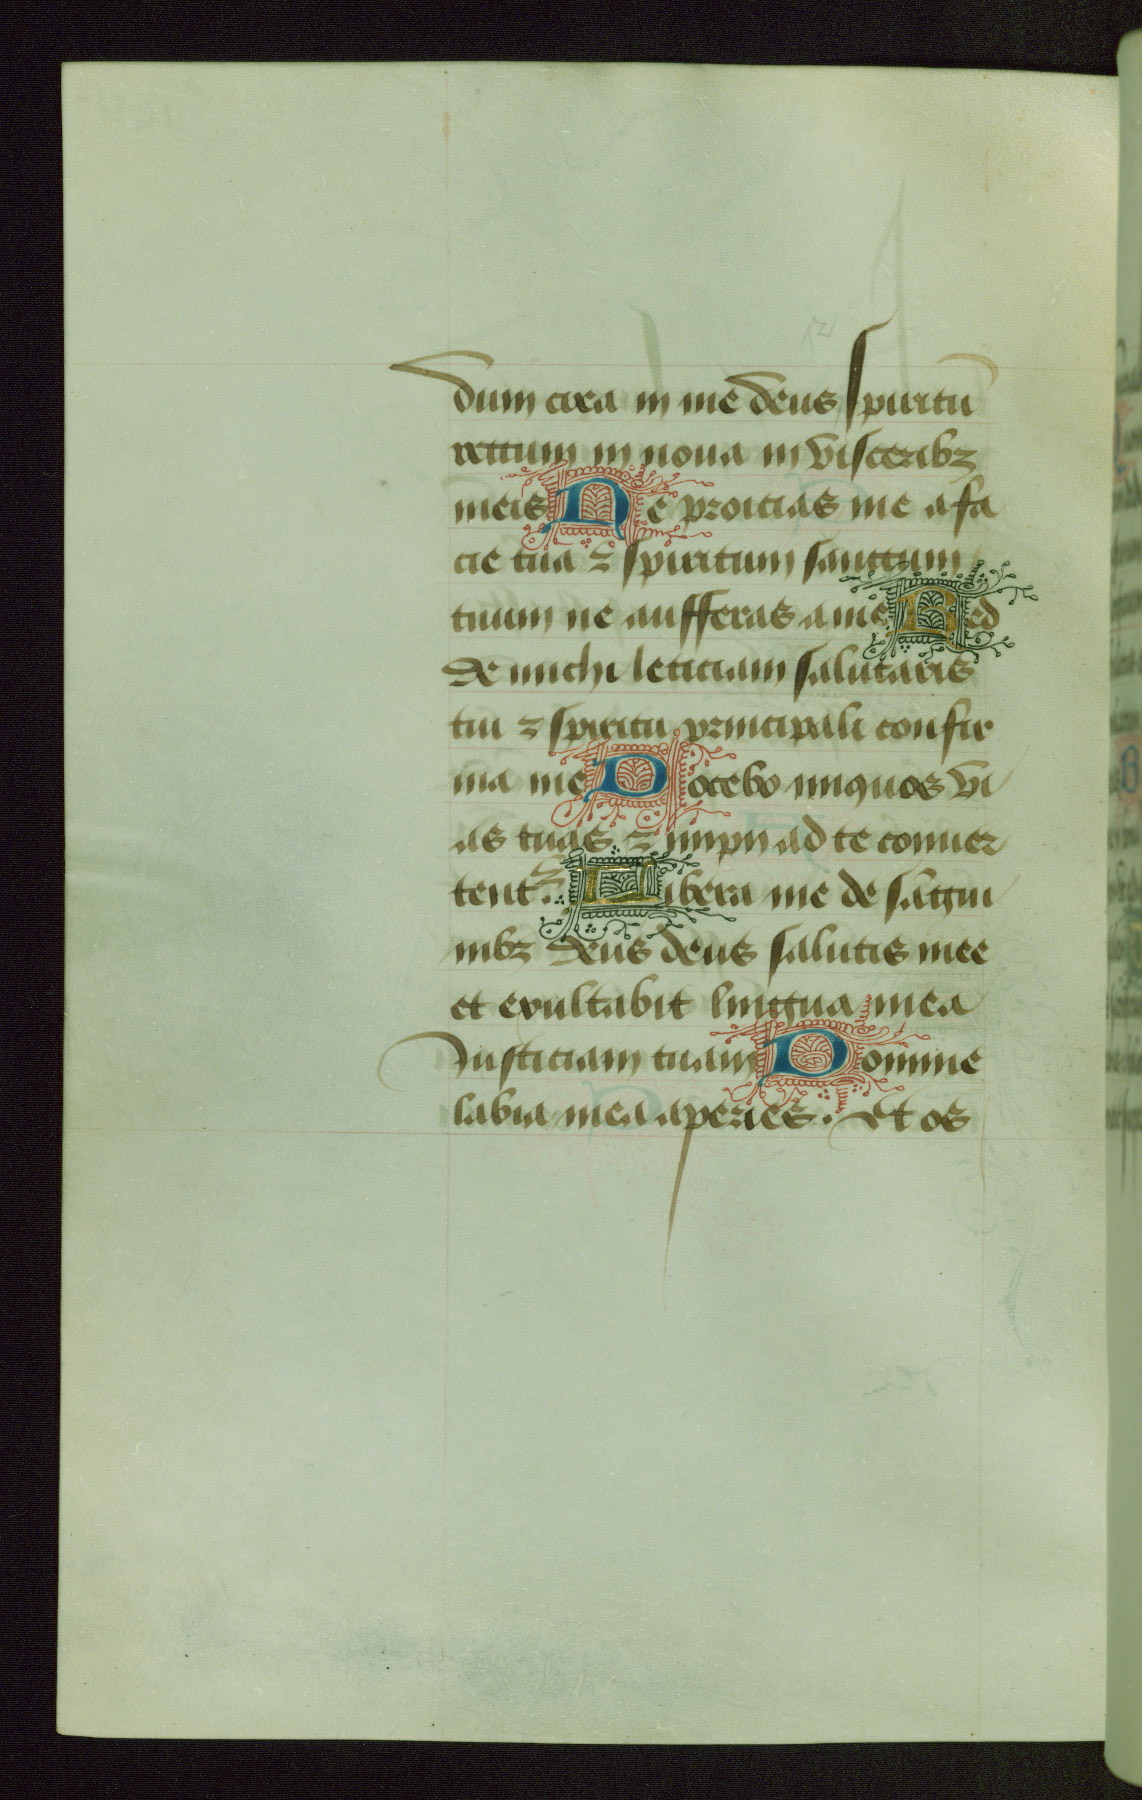 dum crea in me deus spiritū
rectum in noua in visceribꝫ
meis Ne proicias me a fa
cie tua ⁊ spiritum sanctum
tuum ne aufferas a me Red
de michi leticiam salutaris
tui ⁊ spiritu principali confir
ma me Docebo iniquos vi
as tuas ⁊ impij ad te conuer
tent᷑. Libera me de sāgui
nibꝫ deus deus salutis mee
et exultabit lingua mea
Iusticiam tuam Domine
labia mea aperies. Et os